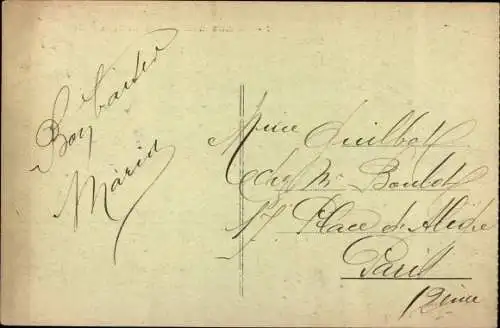 Bon baiser
Maria
Mme Guilbot
chez Mr Boulot
17 Place d'Aligre
Paris
12ème